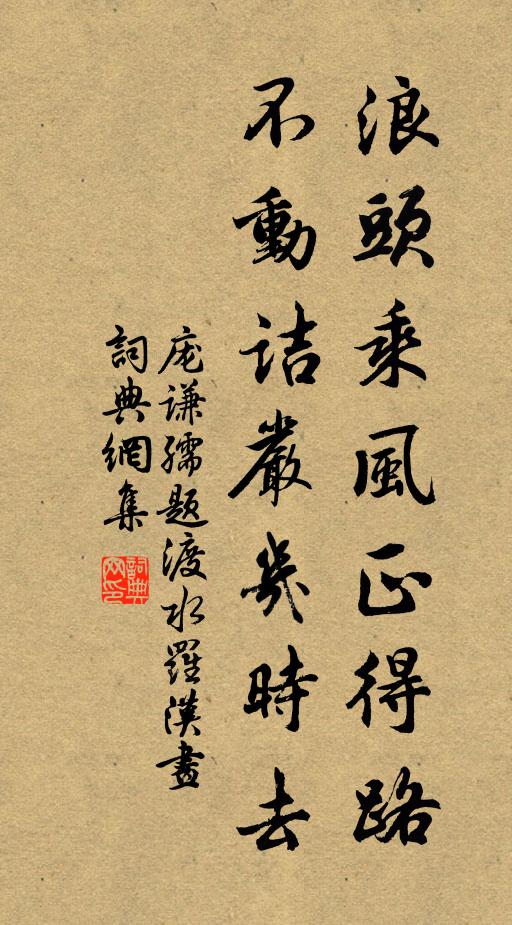 浪頭乘風正得路
不動詰嚴幾時去
庞谦孺题渡水羅漢畫
詞典網集
詞典
网印